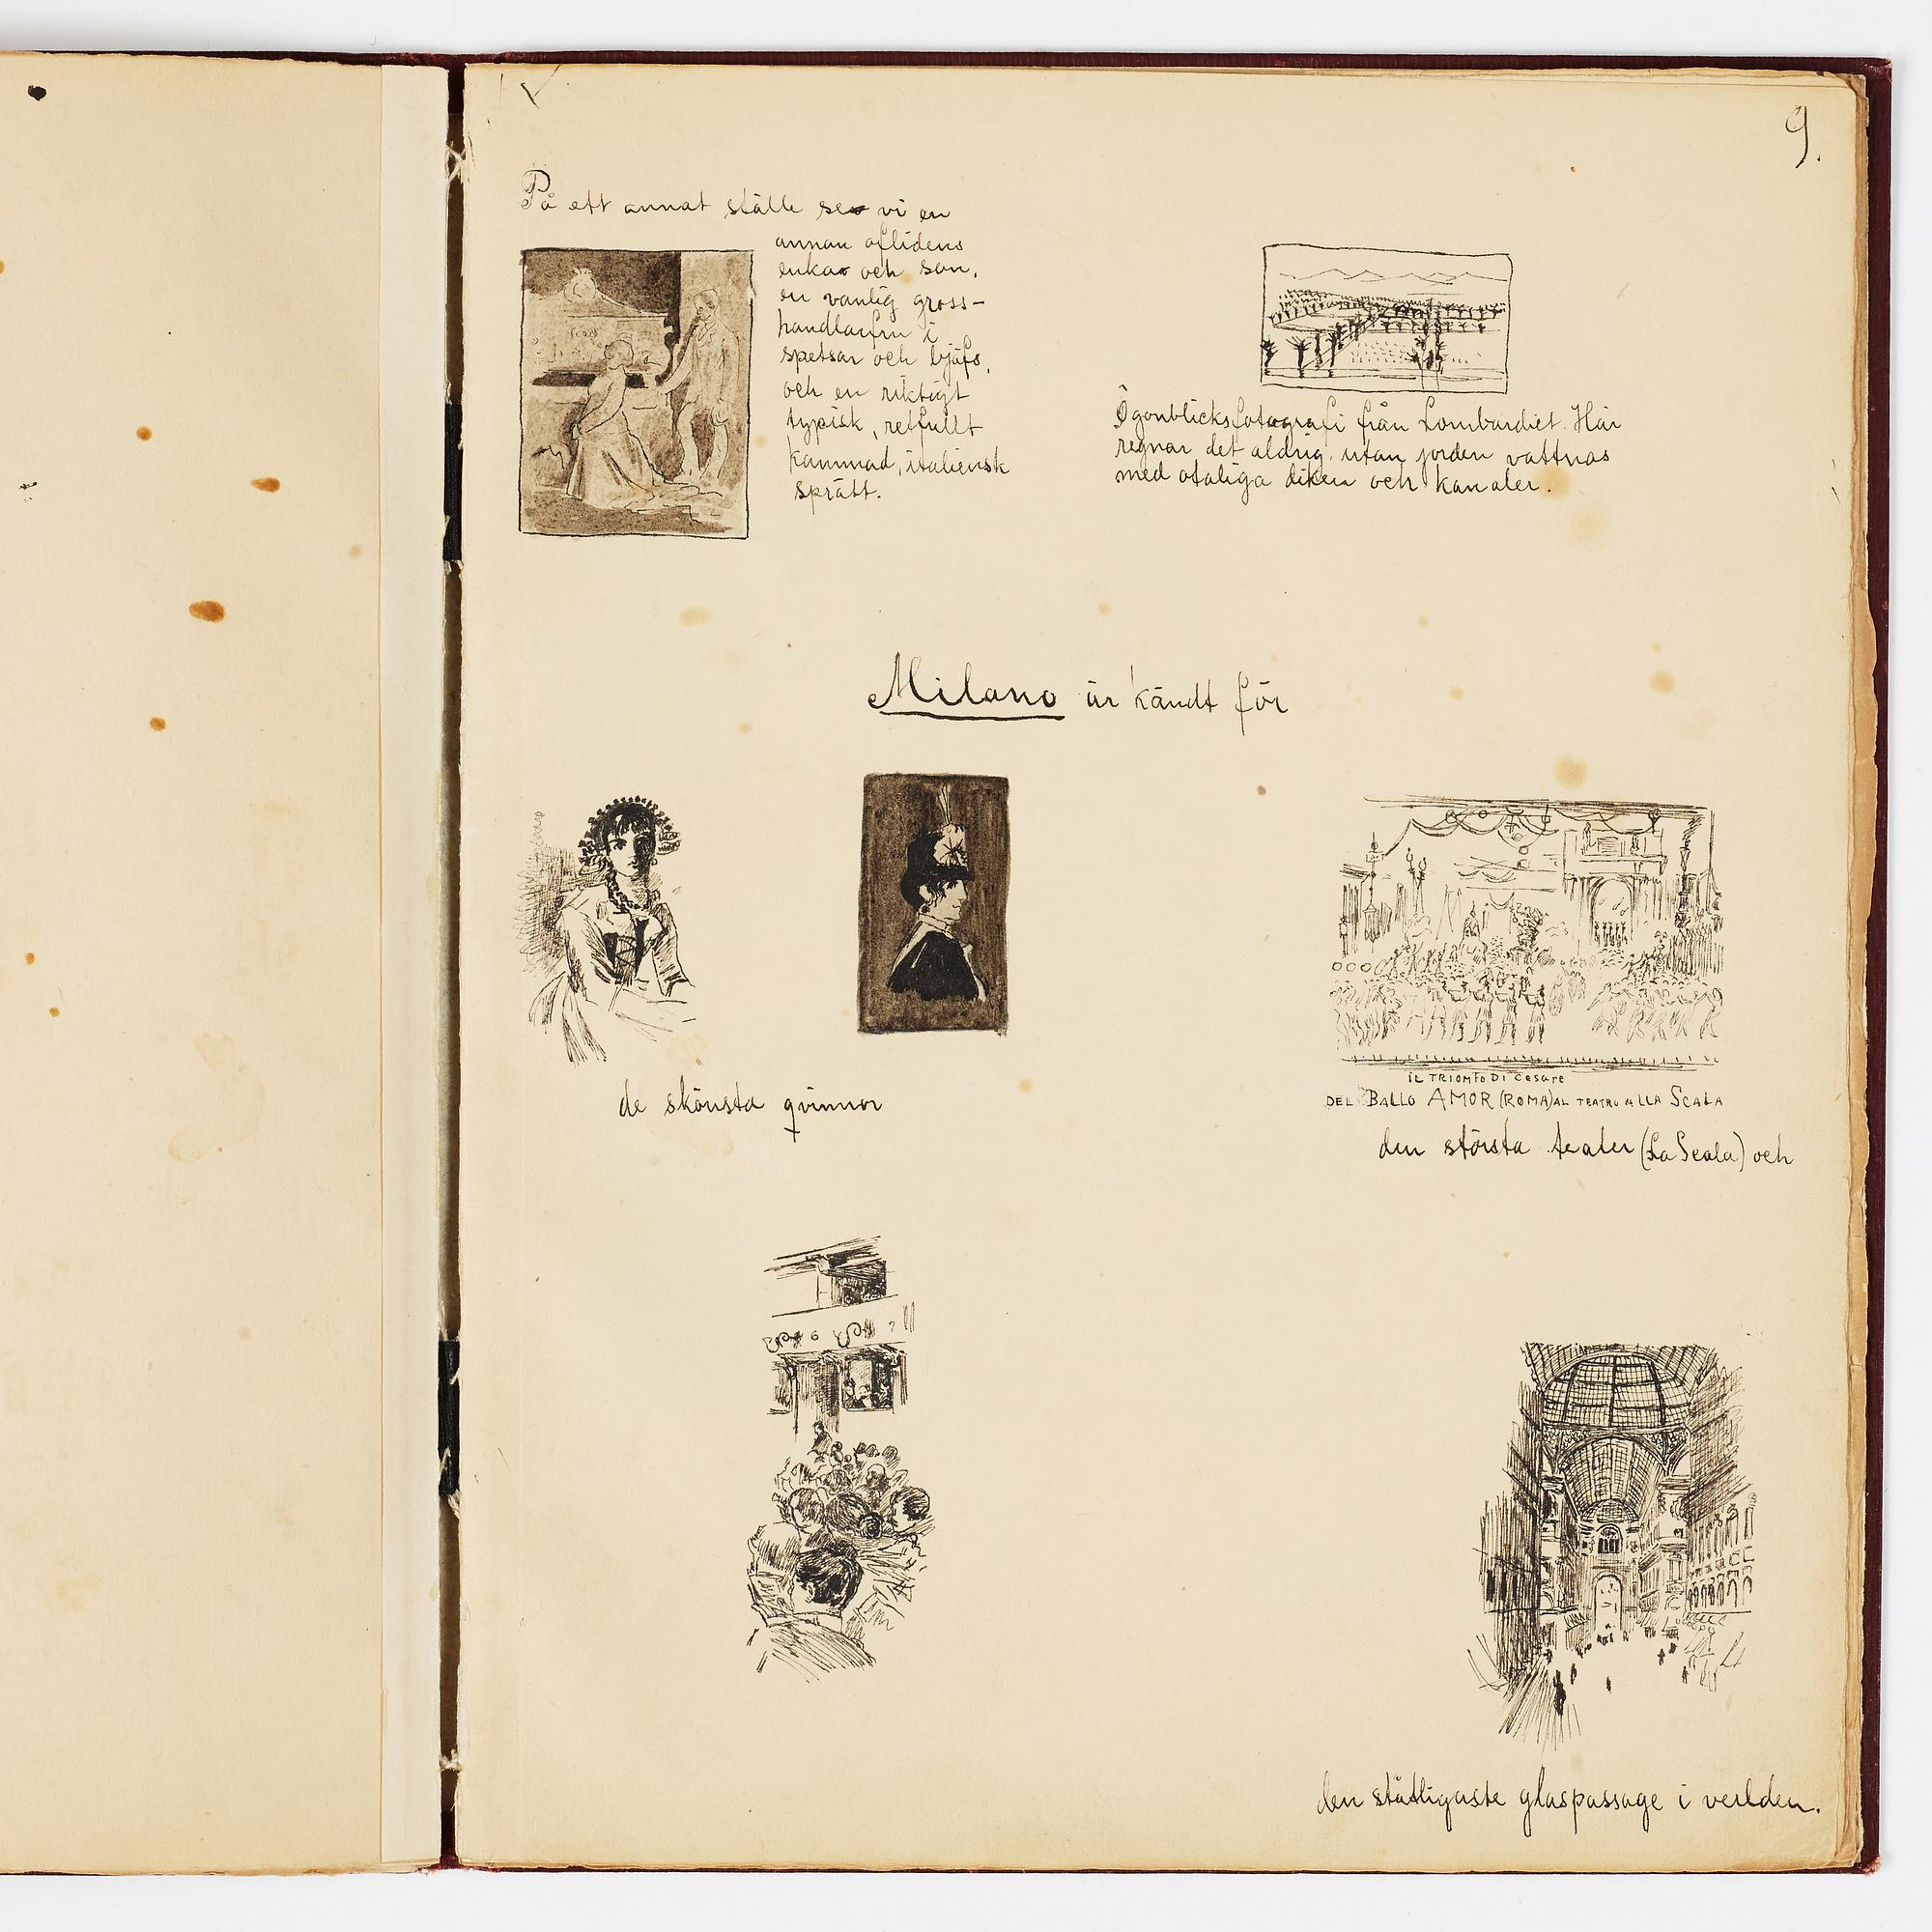 9.
På ett annat ställe se vi en
annan aflidens
enka och son,
en vanlig gross-
handlarfru i
spetsar och bjäfs,
och en riktigt
typisk, retfullt
kammad, italiensk
sprätt.
Ögonblicksfotografi från Lombardiet. Här
regnar det aldrig, utan jorden vattnas
med otaliga diken och kanaler.
Milano är kändt för
de skönsta qvinnor
IL TRIOMFO DI Cesare
DEL BALLO AMOR (ROMA) AL TEATRO ALLA SCALA
den största teater (La Scala) och
den ståtligaste glaspassage i verlden.